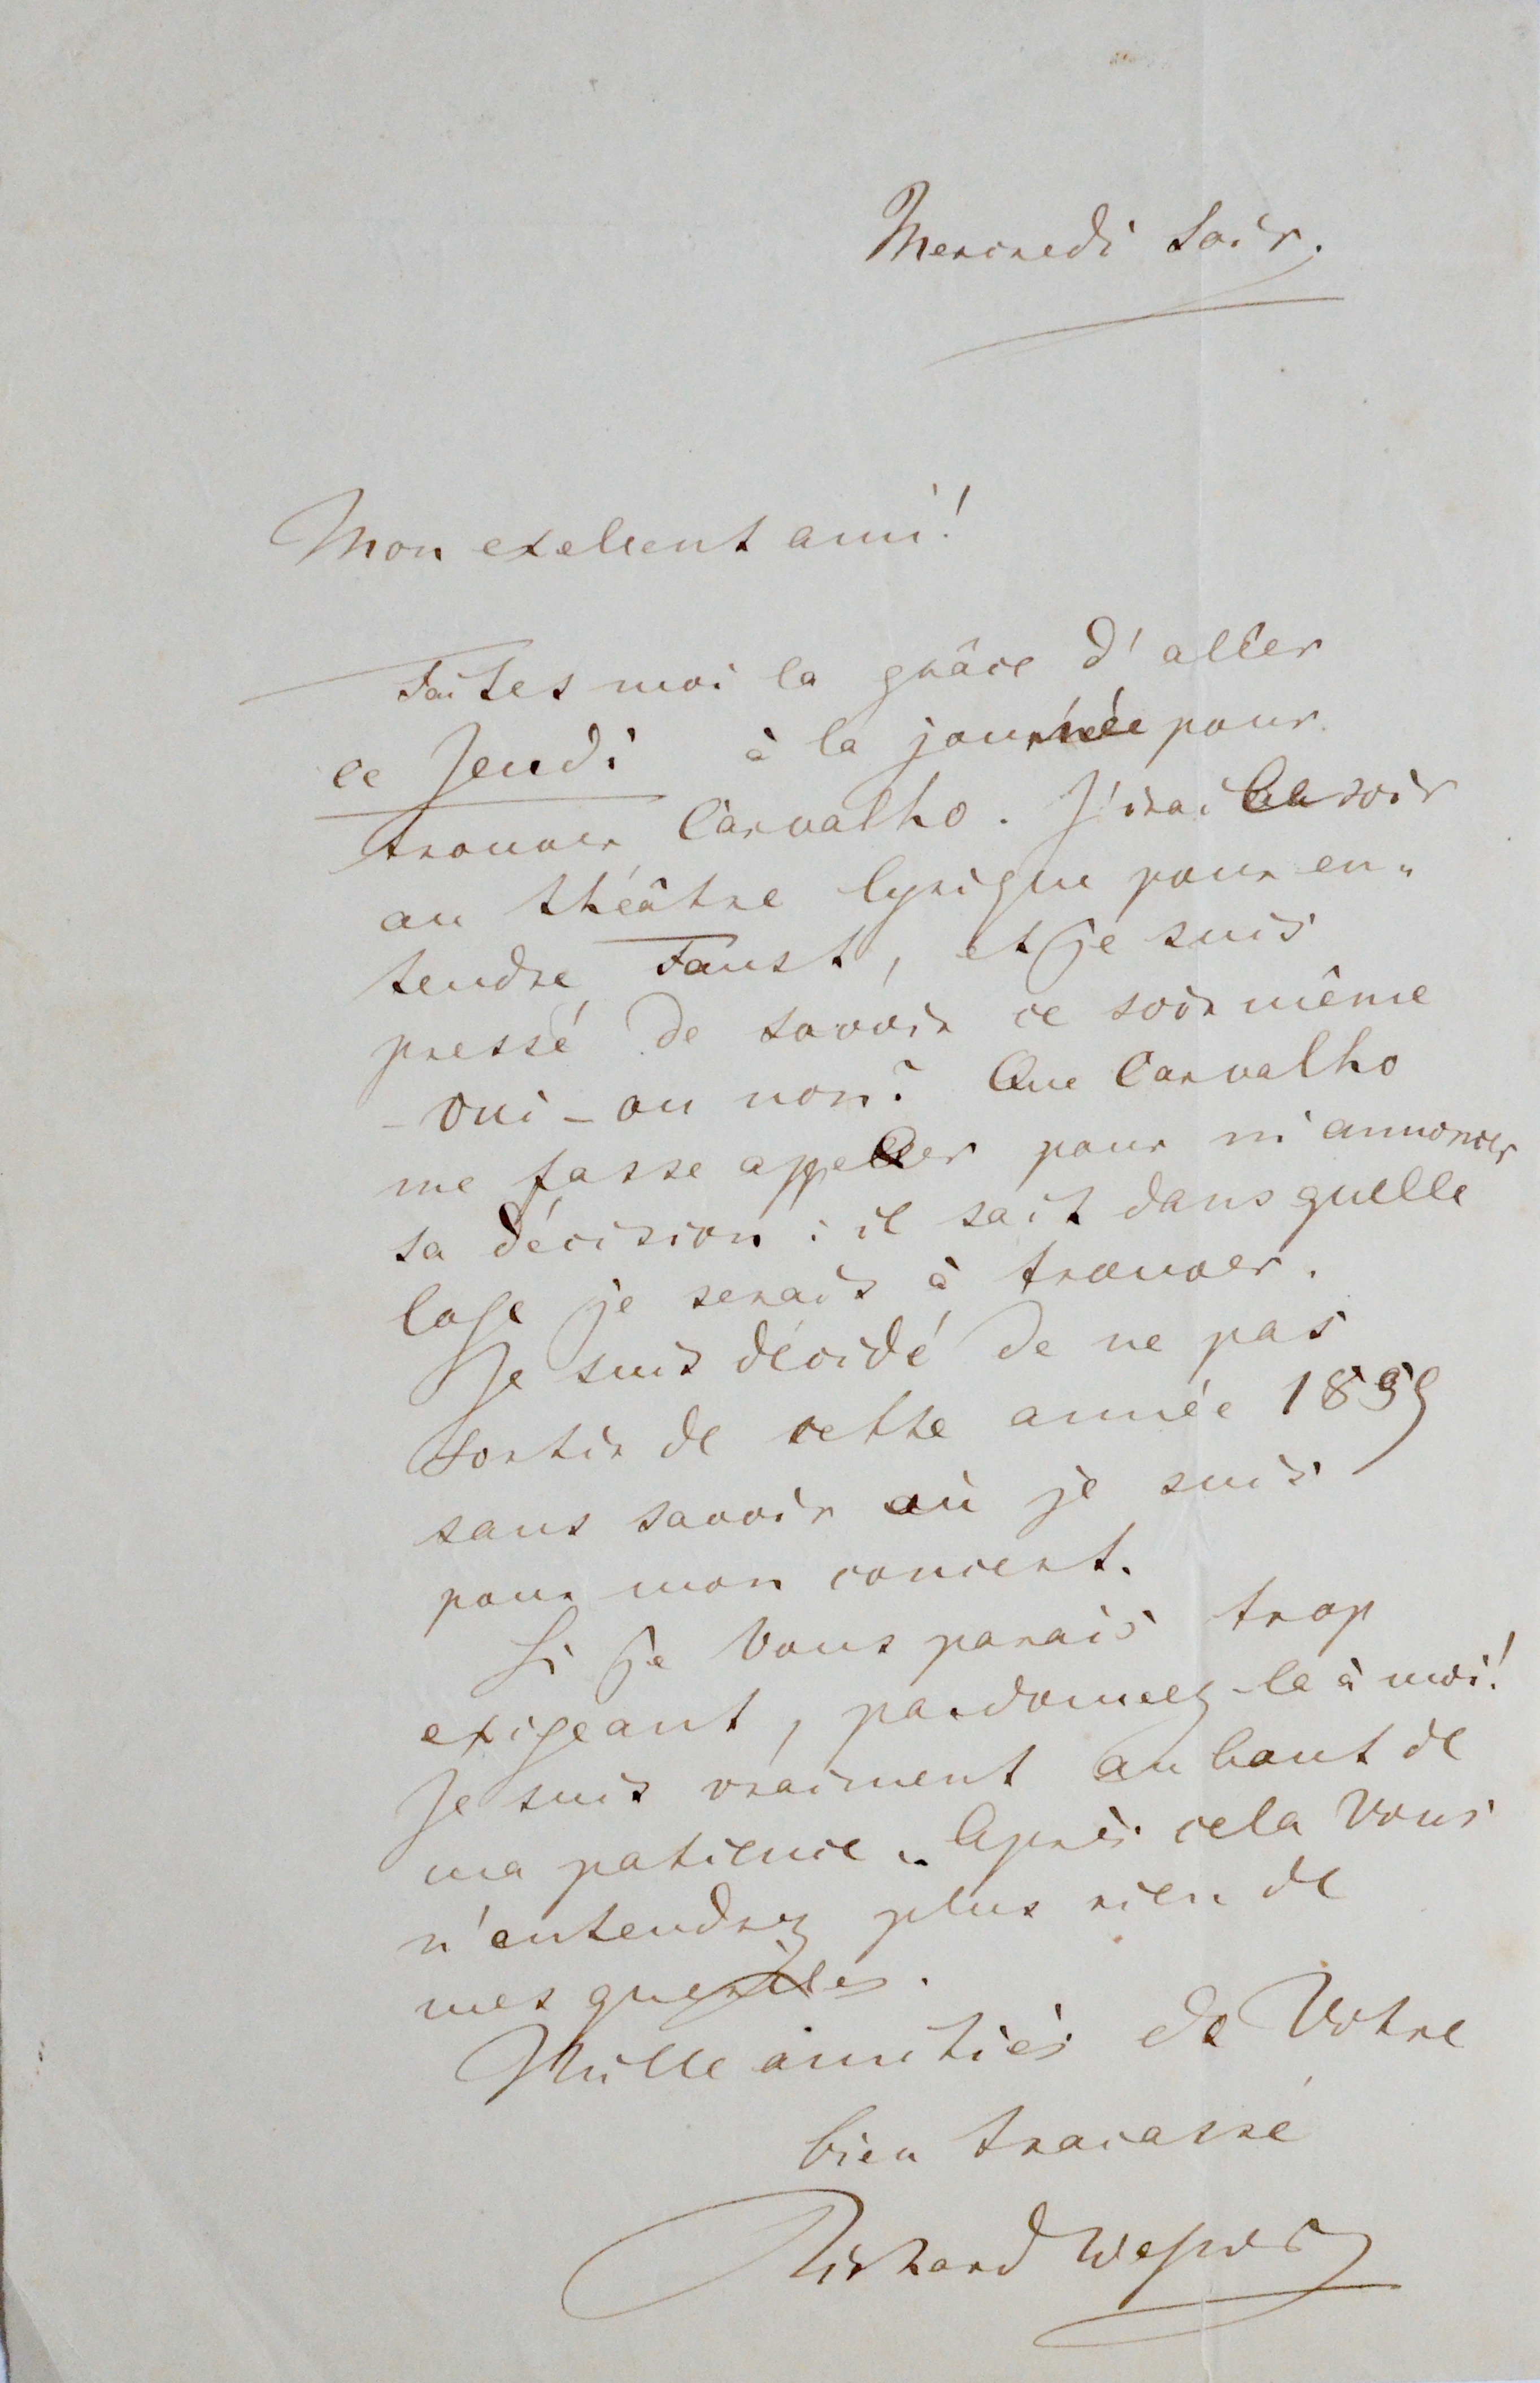 Mercredi Soir.
Mon exellent ami!
Faites moi la grâce d'aller
ce Jeudi à la journée pour
trouver Carvalho. J'irai le soir
au théâtre lyrique pour en-
tendre Faust, et je suis
pressé de savoir ce soir même
- oui - ou non? Que Carvalho
me fasse appeller pour m'annoncer
sa décision: il sait dans quelle
loge je serais à trouver.
Je suis décidé de ne pas
sortir de cette année 1859
sans savoir où je suis
pour mon concert.
Si je Vous parais trop
exigeant, pardonnez-le à moi!
Je suis vraiment au bout de
ma patience. Après cela Vous
n'entendrez plus rien de
mes querèles.
Mille amitiés de Votre
bien tracassé
Richard Wagner